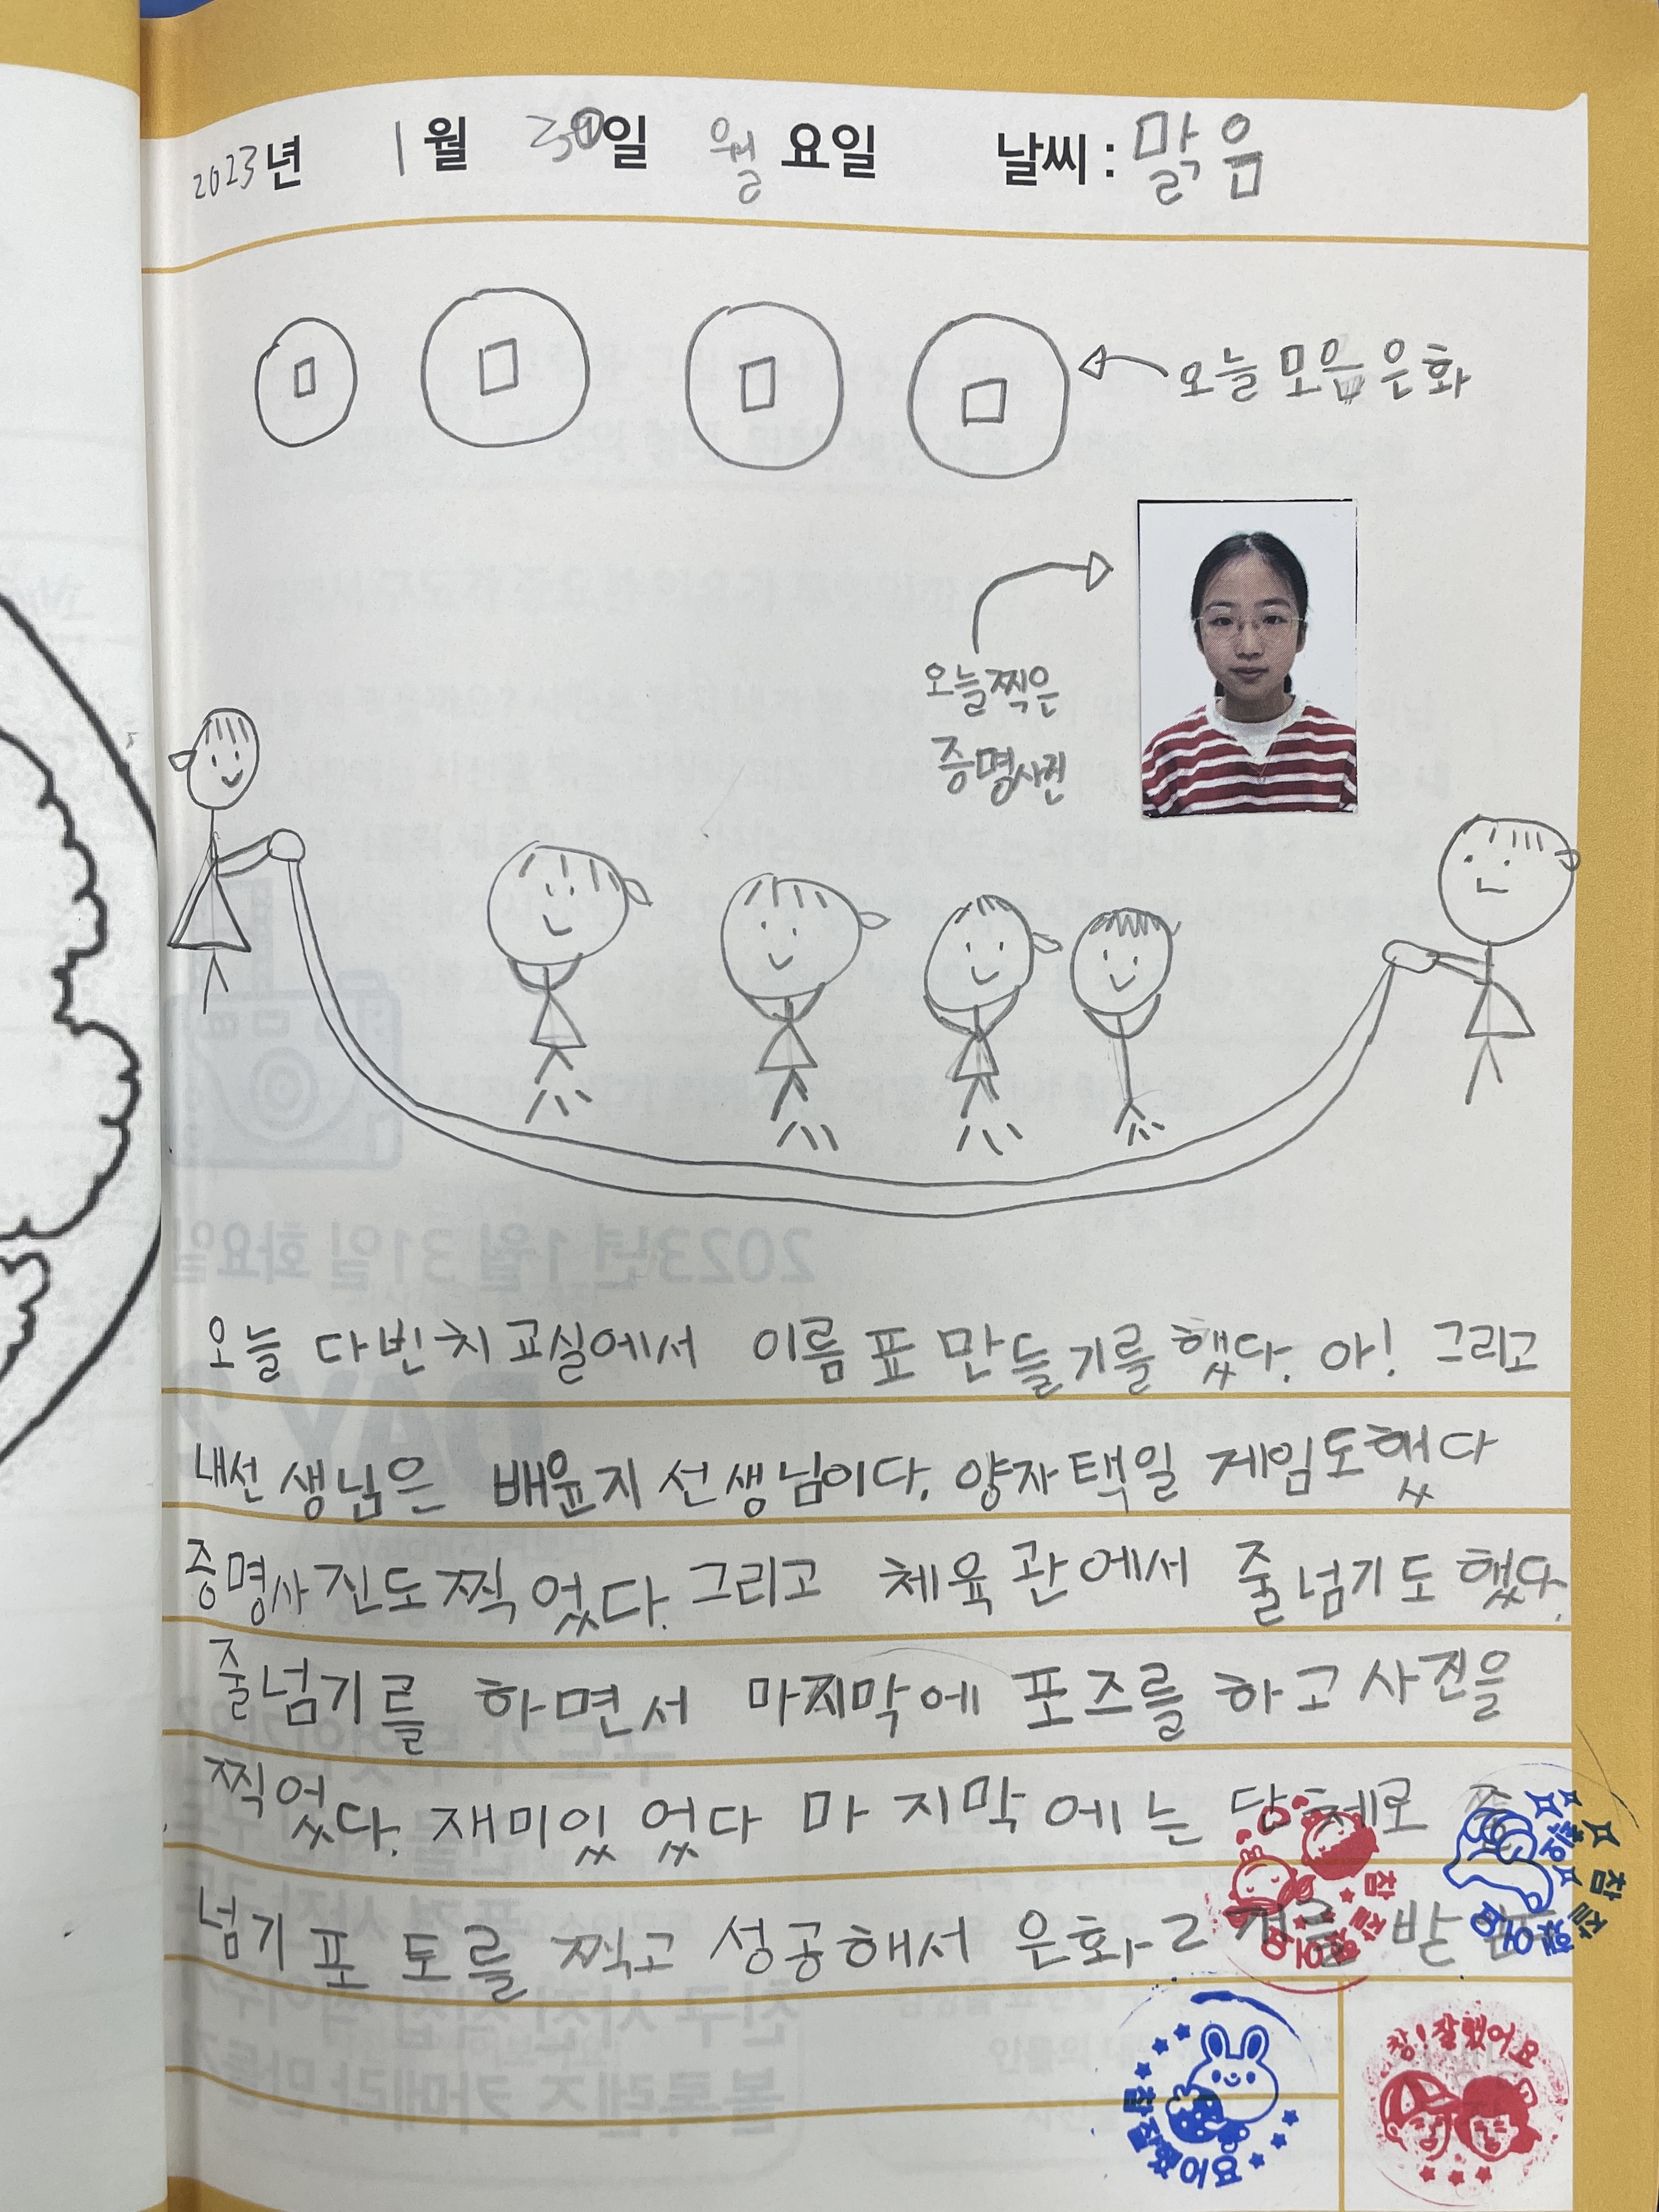 2023년 1월 30일 월요일 날씨 : 맑음
오늘 모음 은화
오늘찍은
증명사진
오늘 다빈치 교실에서 이름표 만들기를 했다. 아! 그리고
내선생님은 배윤지 선생님이다. 양자택일 게임도했다
증명사진도 찍었다. 그리고 체육관에서 줄넘기도 했다.
줄넘기를 하면서 마지막에 포즈를 하고 사진을
찍었다. 재미있었다 마지막에는 단체로 줄
넘기 포토를 찍고 성공해서 은화 2개를 받
참 잘했어요
참 잘했어요
참 잘했어요
참! 잘했어요